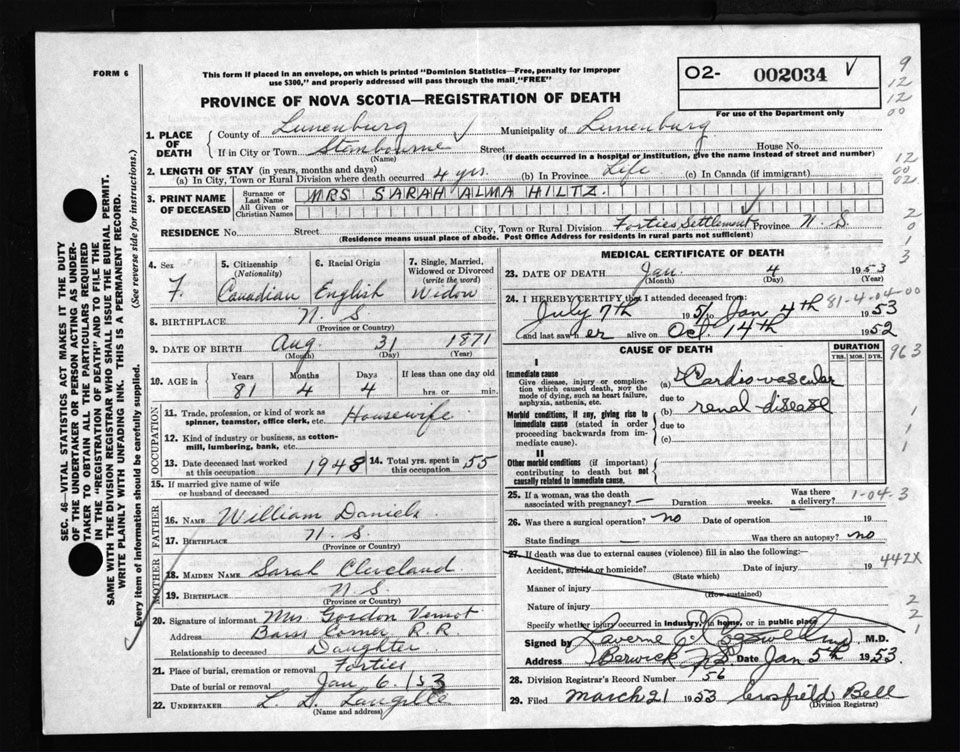 FORM 6
This form if placed in an envelope, on which is printed "Dominion Statistics—Free, penalty for improper
use $300," and properly addressed will pass through the mail "FREE"
O2- 002034 V
For use of the Department only
PROVINCE OF NOVA SCOTIA—REGISTRATION OF DEATH
9
12
12
00
12
00
02
2
0
1
3
1. PLACE OF DEATH { County of Lunenburg Municipality of Lunenburg
If in City or Town Street House No.
(Name) (If death occurred in a hospital or institution, give the name instead of street and number)
2. LENGTH OF STAY (in years, months and days)
(a) In City, Town or Rural Division where death occurred 4 yrs. (b) In Province Life (c) In Canada (if immigrant)
3. PRINT NAME OF DECEASED { Surname or Last Name MRS SARAH ALMA HILTZ.
All Given or Christian Names
RESIDENCE No. Street City, Town or Rural Division Forties Settlement Province N. S
(Residence means usual place of abode. Post Office Address for residents in rural parts not sufficient)
4. Sex 5. Citizenship (Nationality) 6. Racial Origin 7. Single, Married, Widowed or Divorced (write the word)
F. Canadian English Widow
8. BIRTHPLACE N. S
(Province or Country)
9. DATE OF BIRTH Aug. 31 1871
(Month) (Day) (Year)
10. AGE in Years Months Days If less than one day old
81 4 4 hrs. or min.
OCCUPATION
11. Trade, profession, or kind of work as
spinner, teamster, office clerk, etc. Housewife
12. Kind of industry or business, as cotton-
mill, lumbering, bank, etc.
13. Date deceased last worked at this occupation 1948 14. Total yrs. spent in this occupation 55
15. If married give name of wife
or husband of deceased
FATHER
16. NAME William Daniels
17. BIRTHPLACE N. S.
(Province or Country)
MOTHER
18. MAIDEN NAME Sarah Cleveland
19. BIRTHPLACE N. S
(Province or Country)
20. Signature of informant Mrs Gordon Vernot
Address Barss Corner R R
Relationship to deceased Daughter
21. Place of burial, cremation or removal Forties
Date of burial or removal Jan 6. 153
22. UNDERTAKER L. D. Langille
(Name and address)
MEDICAL CERTIFICATE OF DEATH
23. DATE OF DEATH Jan 4 1953
(Month) (Day)
24. I HEREBY CERTIFY that I attended deceased from
July 7th 1951 to Jan 4th 1953
81-4-04-00
and last saw her alive on Oct 14th 1952
CAUSE OF DEATH DURATION
YRS. MOS. DYS.
963
I
Immediate cause
Give disease, injury or complica-
tion which caused death, NOT the
mode of dying, such as heart failure,
asphyxia, asthenia, etc.
(a) Cardio-vascular
due to
(b) renal disease
Morbid conditions, if any, giving rise to
Immediate cause (stated in order
proceeding backwards from im-
mediate cause).
due to
(c)
1
1
II
Other morbid conditions (if important)
contributing to death but not
causally related to immediate cause.
25. If a woman, was the death
associated with pregnancy? — Duration weeks. Was there a delivery?
1-04-3
26. Was there a surgical operation? no Date of operation 19
State findings — Was there an autopsy? no
27. If death was due to external causes (violence) fill in also the following:—
442X
Accident, suicide or homicide? Date of injury 19
(State which)
Manner of injury
(How sustained)
Nature of injury
2
2
1
Specify whether injury occurred in industry, in home, or in public place
Signed by Laverne C Cogswell M.D.
Address Berwick NS Date Jan 5th 1953.
28. Division Registrar's Record Number 56
29. Filed March 21 1953 Crosfield Bell
(Division Registrar)
SEC. 46—VITAL STATISTICS ACT MAKES IT THE DUTY
OF THE UNDERTAKER OR PERSON ACTING AS UNDER-
TAKER TO OBTAIN ALL THE PARTICULARS REQUIRED
IN THE "REGISTRATION OF DEATH" AND TO FILE THE
SAME WITH THE DIVISION REGISTRAR WHO SHALL ISSUE THE BURIAL PERMIT.
WRITE PLAINLY WITH UNFADING INK. THIS IS A PERMANENT RECORD.
Every item of information should be carefully supplied. (See reverse side for instructions.)